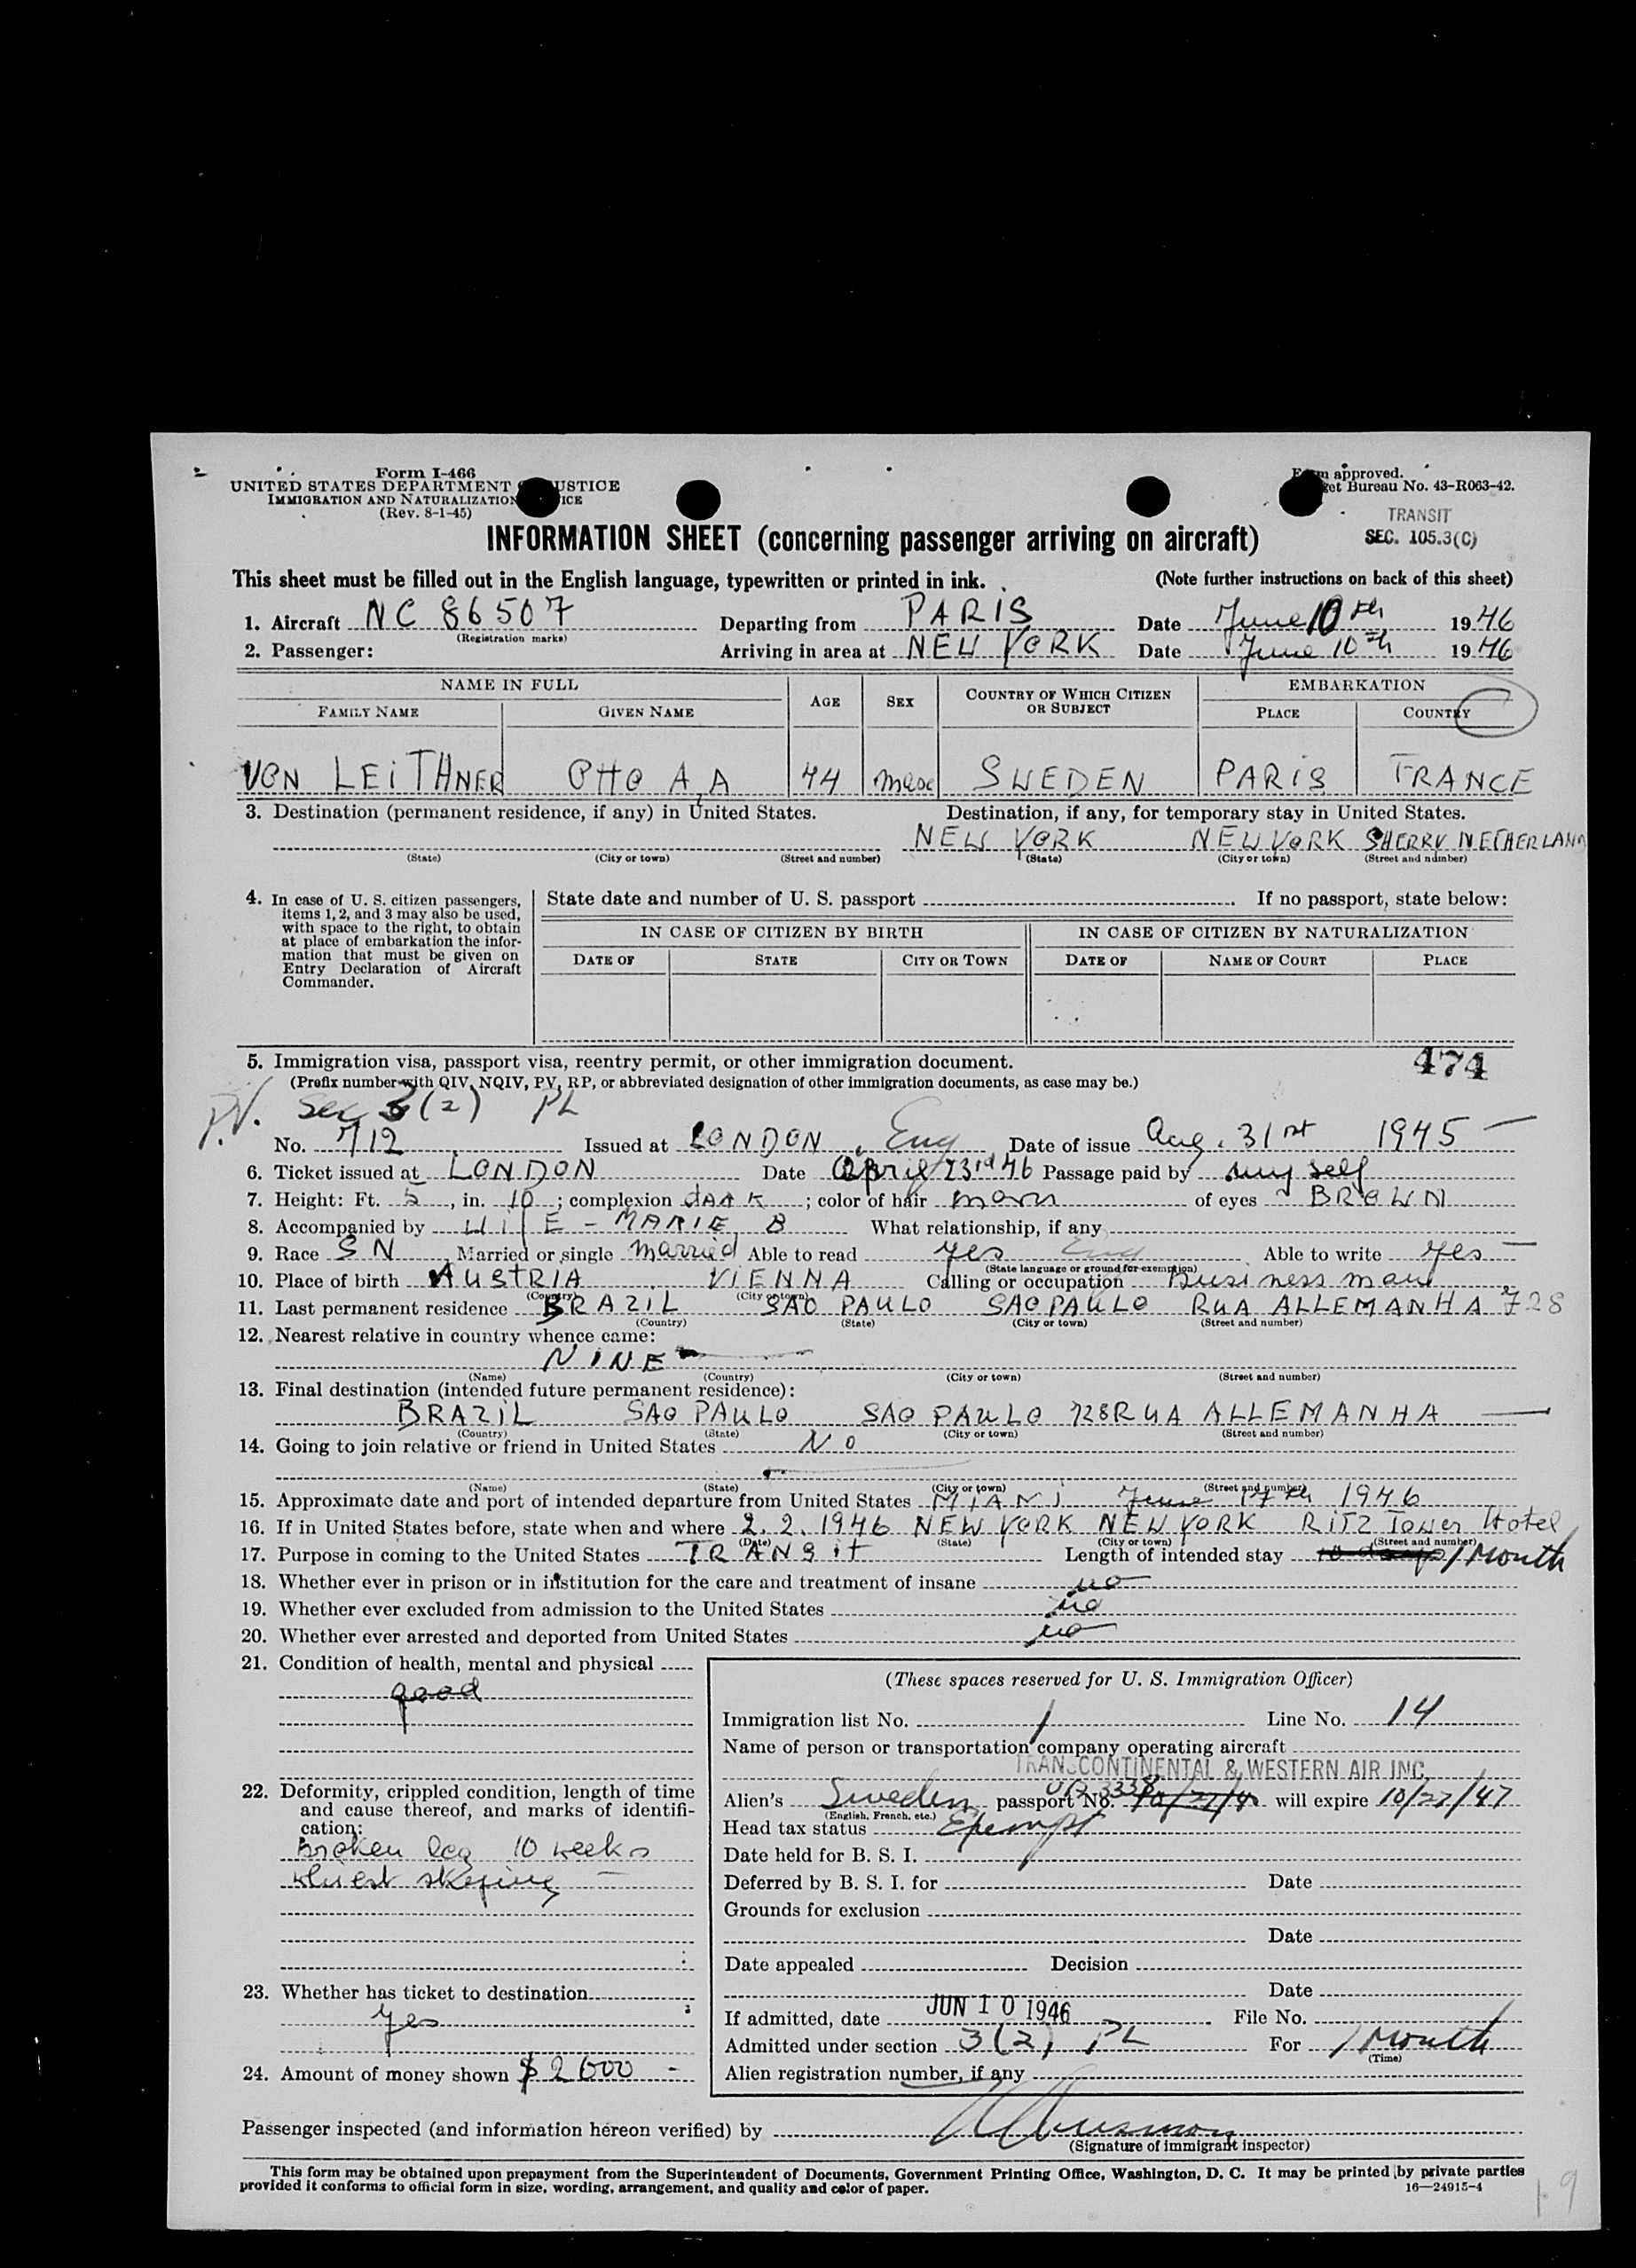 Form I-466
UNITED STATES DEPARTMENT JUSTICE
IMMIGRATION AND NATURALIZATION ICE
(Rev. 8-1-45)
approved.
et Bureau No. 43-R063-42.
TRANSIT
SEC. 105.3(C)
INFORMATION SHEET (concerning passenger arriving on aircraft)
This sheet must be filled out in the English language, typewritten or printed in ink. (Note further instructions on back of this sheet)
1. Aircraft NC 86507 Departing from PARIS Date June 10th 1946
(Registration marks)
2. Passenger: Arriving in area at NEW YORK Date June 10th 1946
NAME IN FULL AGE SEX COUNTRY OF WHICH CITIZEN OR SUBJECT EMBARKATION
FAMILY NAME GIVEN NAME PLACE COUNTRY
VON LEITHNER OTTO A,A 44 SWEDEN PARIS FRANCE
3. Destination (permanent residence, if any) in United States. Destination, if any, for temporary stay in United States.
NEW YORK NEW YORK SHERRY NETHERLAND
(State) (City or town) (Street and number) (State) (City or town) (Street and number)
4. In case of U. S. citizen passengers, items 1, 2, and 3 may also be used, with space to the right, to obtain at place of embarkation the information that must be given on Entry Declaration of Aircraft Commander.
State date and number of U. S. passport If no passport, state below:
IN CASE OF CITIZEN BY BIRTH IN CASE OF CITIZEN BY NATURALIZATION
DATE OF STATE CITY OR TOWN DATE OF NAME OF COURT PLACE
5. Immigration visa, passport visa, reentry permit, or other immigration document. 474
(Prefix number with QIV, NQIV, PV, RP, or abbreviated designation of other immigration documents, as case may be.)
P.V. Sec 3(2) PL
No. 712 Issued at LONDON, Eng Date of issue Aug. 31st 1945
6. Ticket issued at LONDON Date April 23rd 46 Passage paid by my self
7. Height: Ft. 5, in. 10; complexion dARK; color of hair of eyes BROWN
8. Accompanied by WIFE - MARIE B What relationship, if any
9. Race SN Married or single married Able to read yes Eng Able to write yes
(State language or ground for exemption)
10. Place of birth AUSTRIA VIENNA Calling or occupation Business man
(Country) (City or town)
11. Last permanent residence BRAZIL SAO PAULO SAO PAULO RUA ALLEMANHA 728
(Country) (State) (City or town) (Street and number)
12. Nearest relative in country whence came:
NINE
(Name) (Country) (City or town) (Street and number)
13. Final destination (intended future permanent residence):
BRAZIL SAO PAULO SAO PAULO 728 RUA ALLEMANHA
(Country) (State) (City or town) (Street and number)
14. Going to join relative or friend in United States No
(Name) (State) (City or town) (Street and number)
15. Approximate date and port of intended departure from United States MIAMI June 17th 1946
16. If in United States before, state when and where 2.2.1946 NEW YORK NEW YORK RITZ Tower Hotel
(Date) (State) (City or town) (Street and number)
17. Purpose in coming to the United States TRANSIT Length of intended stay 1 Month
18. Whether ever in prison or in institution for the care and treatment of insane no
19. Whether ever excluded from admission to the United States no
20. Whether ever arrested and deported from United States no
21. Condition of health, mental and physical
good
22. Deformity, crippled condition, length of time and cause thereof, and marks of identification:
Broken leg 10 weeks
23. Whether has ticket to destination
Yes
24. Amount of money shown $ 2600 -
(These spaces reserved for U. S. Immigration Officer)
Immigration list No. 1 Line No. 14
Name of person or transportation company operating aircraft
TRANSCONTINENTAL & WESTERN AIR INC.
Alien's Sweden passport No. 3338 will expire 10/27/47
(English, French, etc.)
Head tax status Exempt
Date held for B. S. I.
Deferred by B. S. I. for Date
Grounds for exclusion
Date
Date appealed Decision
Date
If admitted, date JUN 10 1946 File No.
Admitted under section 3(2) PL For 1 Month
(Time)
Alien registration number, if any
Passenger inspected (and information hereon verified) by
(Signature of immigrant inspector)
This form may be obtained upon prepayment from the Superintendent of Documents, Government Printing Office, Washington, D. C. It may be printed by private parties
provided it conforms to official form in size, wording, arrangement, and quality and color of paper.
16—24915-4
19